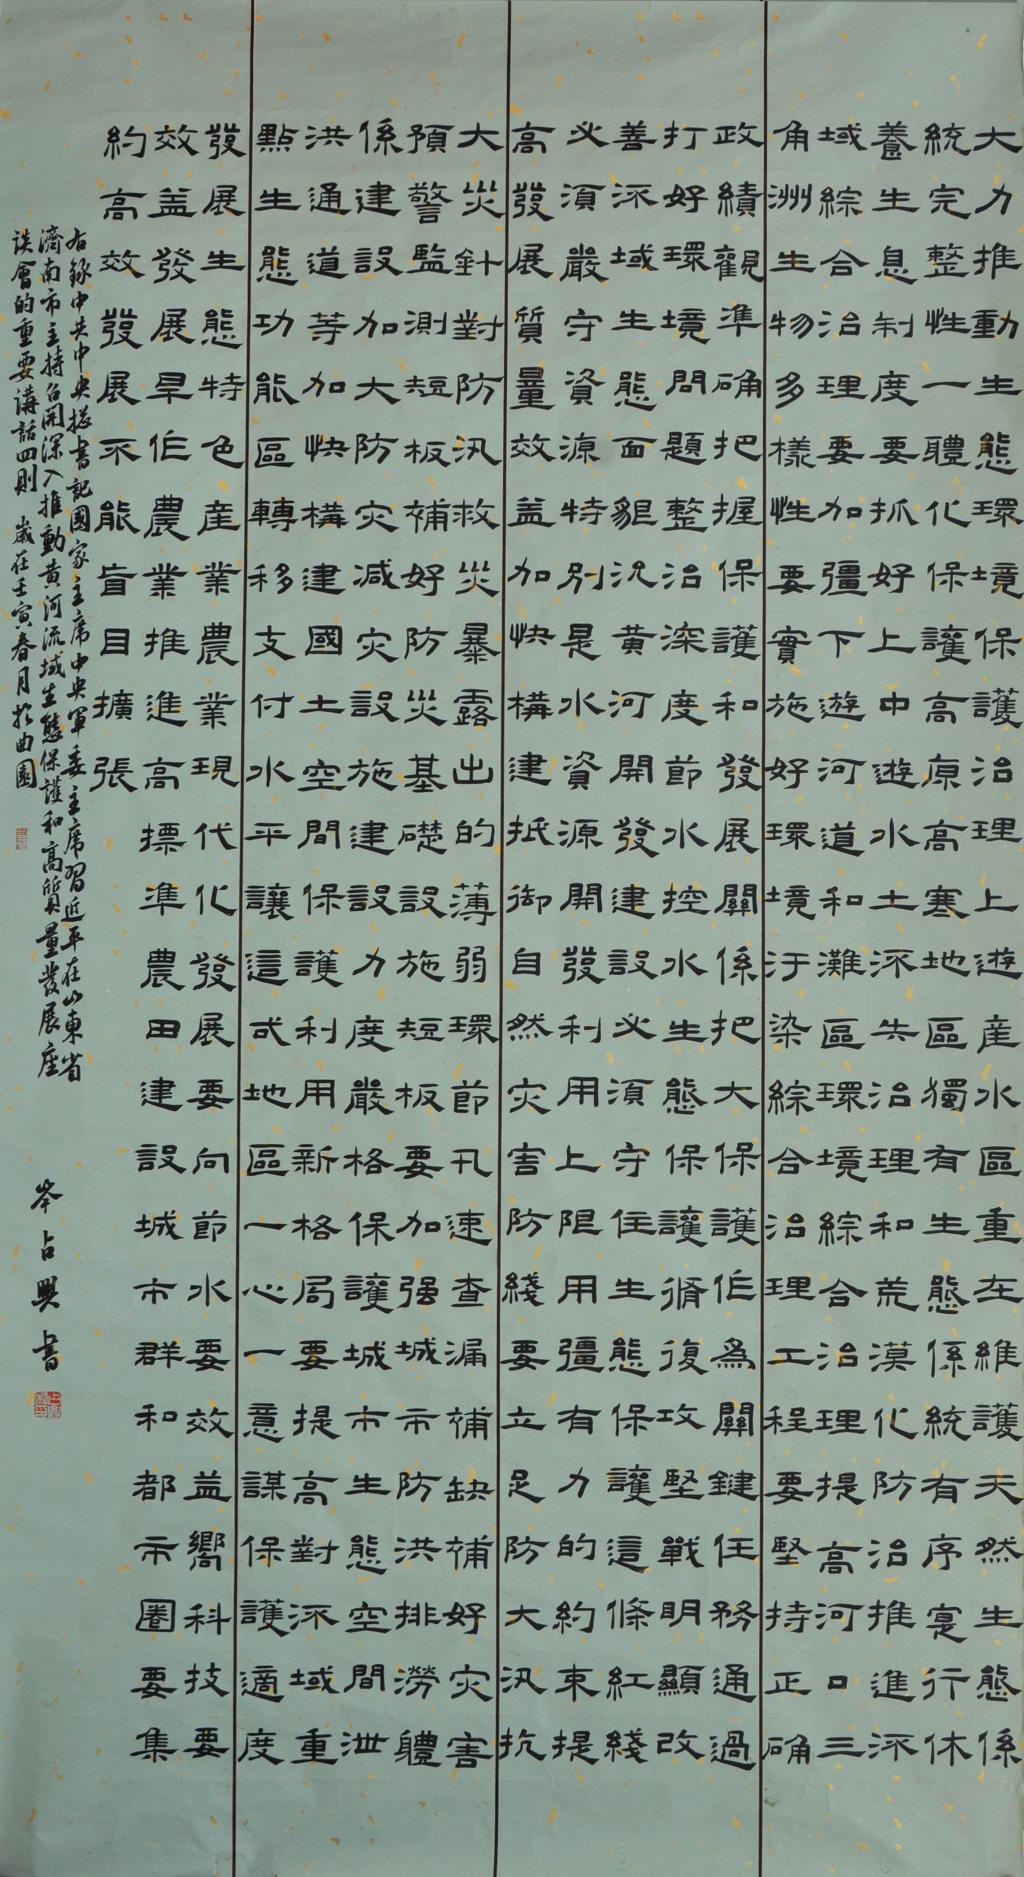 大力推動生態環境保護治理上遊産水區重在維護天然生態係
統完整性一體化保護高原高寒地區獨有生態係統有序寔行休
養生息制度要抓好上中遊水土流失治理和荒漠化防治推進流
域綜合治理要加彊下遊河道和灘區環境綜合治理提高河口三
角洲生物多樣性要實施好環境汙染綜合治理工程要堅持正确
政績觀準确把握保護和發展關係把大保護作為關鍵任務通過
打好環境問題整治深度節水控水生態保護脩復攻堅戰明顯改
善流域生態面貌況黃河開發建設必須守住生態保護這條紅綫
必須嚴守資源特別是水資源開發利用上限用彊有力的約束提
高發展質量效益加快構建抵御自然灾害防綫要立足防大汛抗
大災針對防汛救災暴露出的薄弱環節卂速查漏補缺補好灾害
預警監測短板補好防災基礎設施短板要加强城市防洪排澇體
係建設加大防灾減灾設施建設力度嚴格保護城市生態空間泄
洪通道等加快構建國土空間保護利用新格局要提高對流域重
點生態功能區轉移支付水平讓這弌地區一心一意謀保護適度
發展生態特色産業農業現代化發展要向節水要效益嚮科技要
效益發展旱作農業推進高標準農田建設城市群和都市圈要集
約高效發展不能盲目擴張
右錄中共中央總書記國家主席中央軍委主席習近平在山東省
濟南市主持召開深入推動黃河流域生態保護和高質量發展座
談會的重要講話四則 歲在壬寅春月於曲園
岑占興書